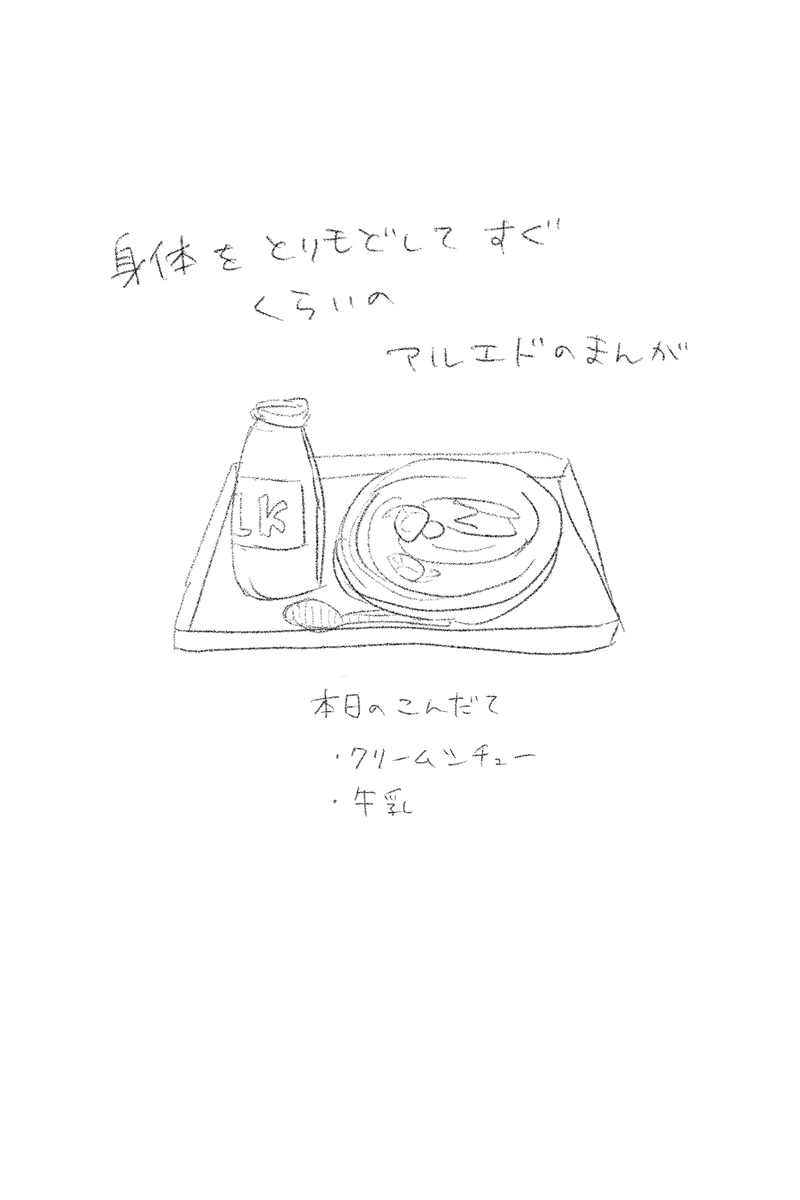 身体をとりもどしてすぐ
くらいの
アルエドのまんが
LK
本日のこんだて
・クリームシチュー
・牛乳